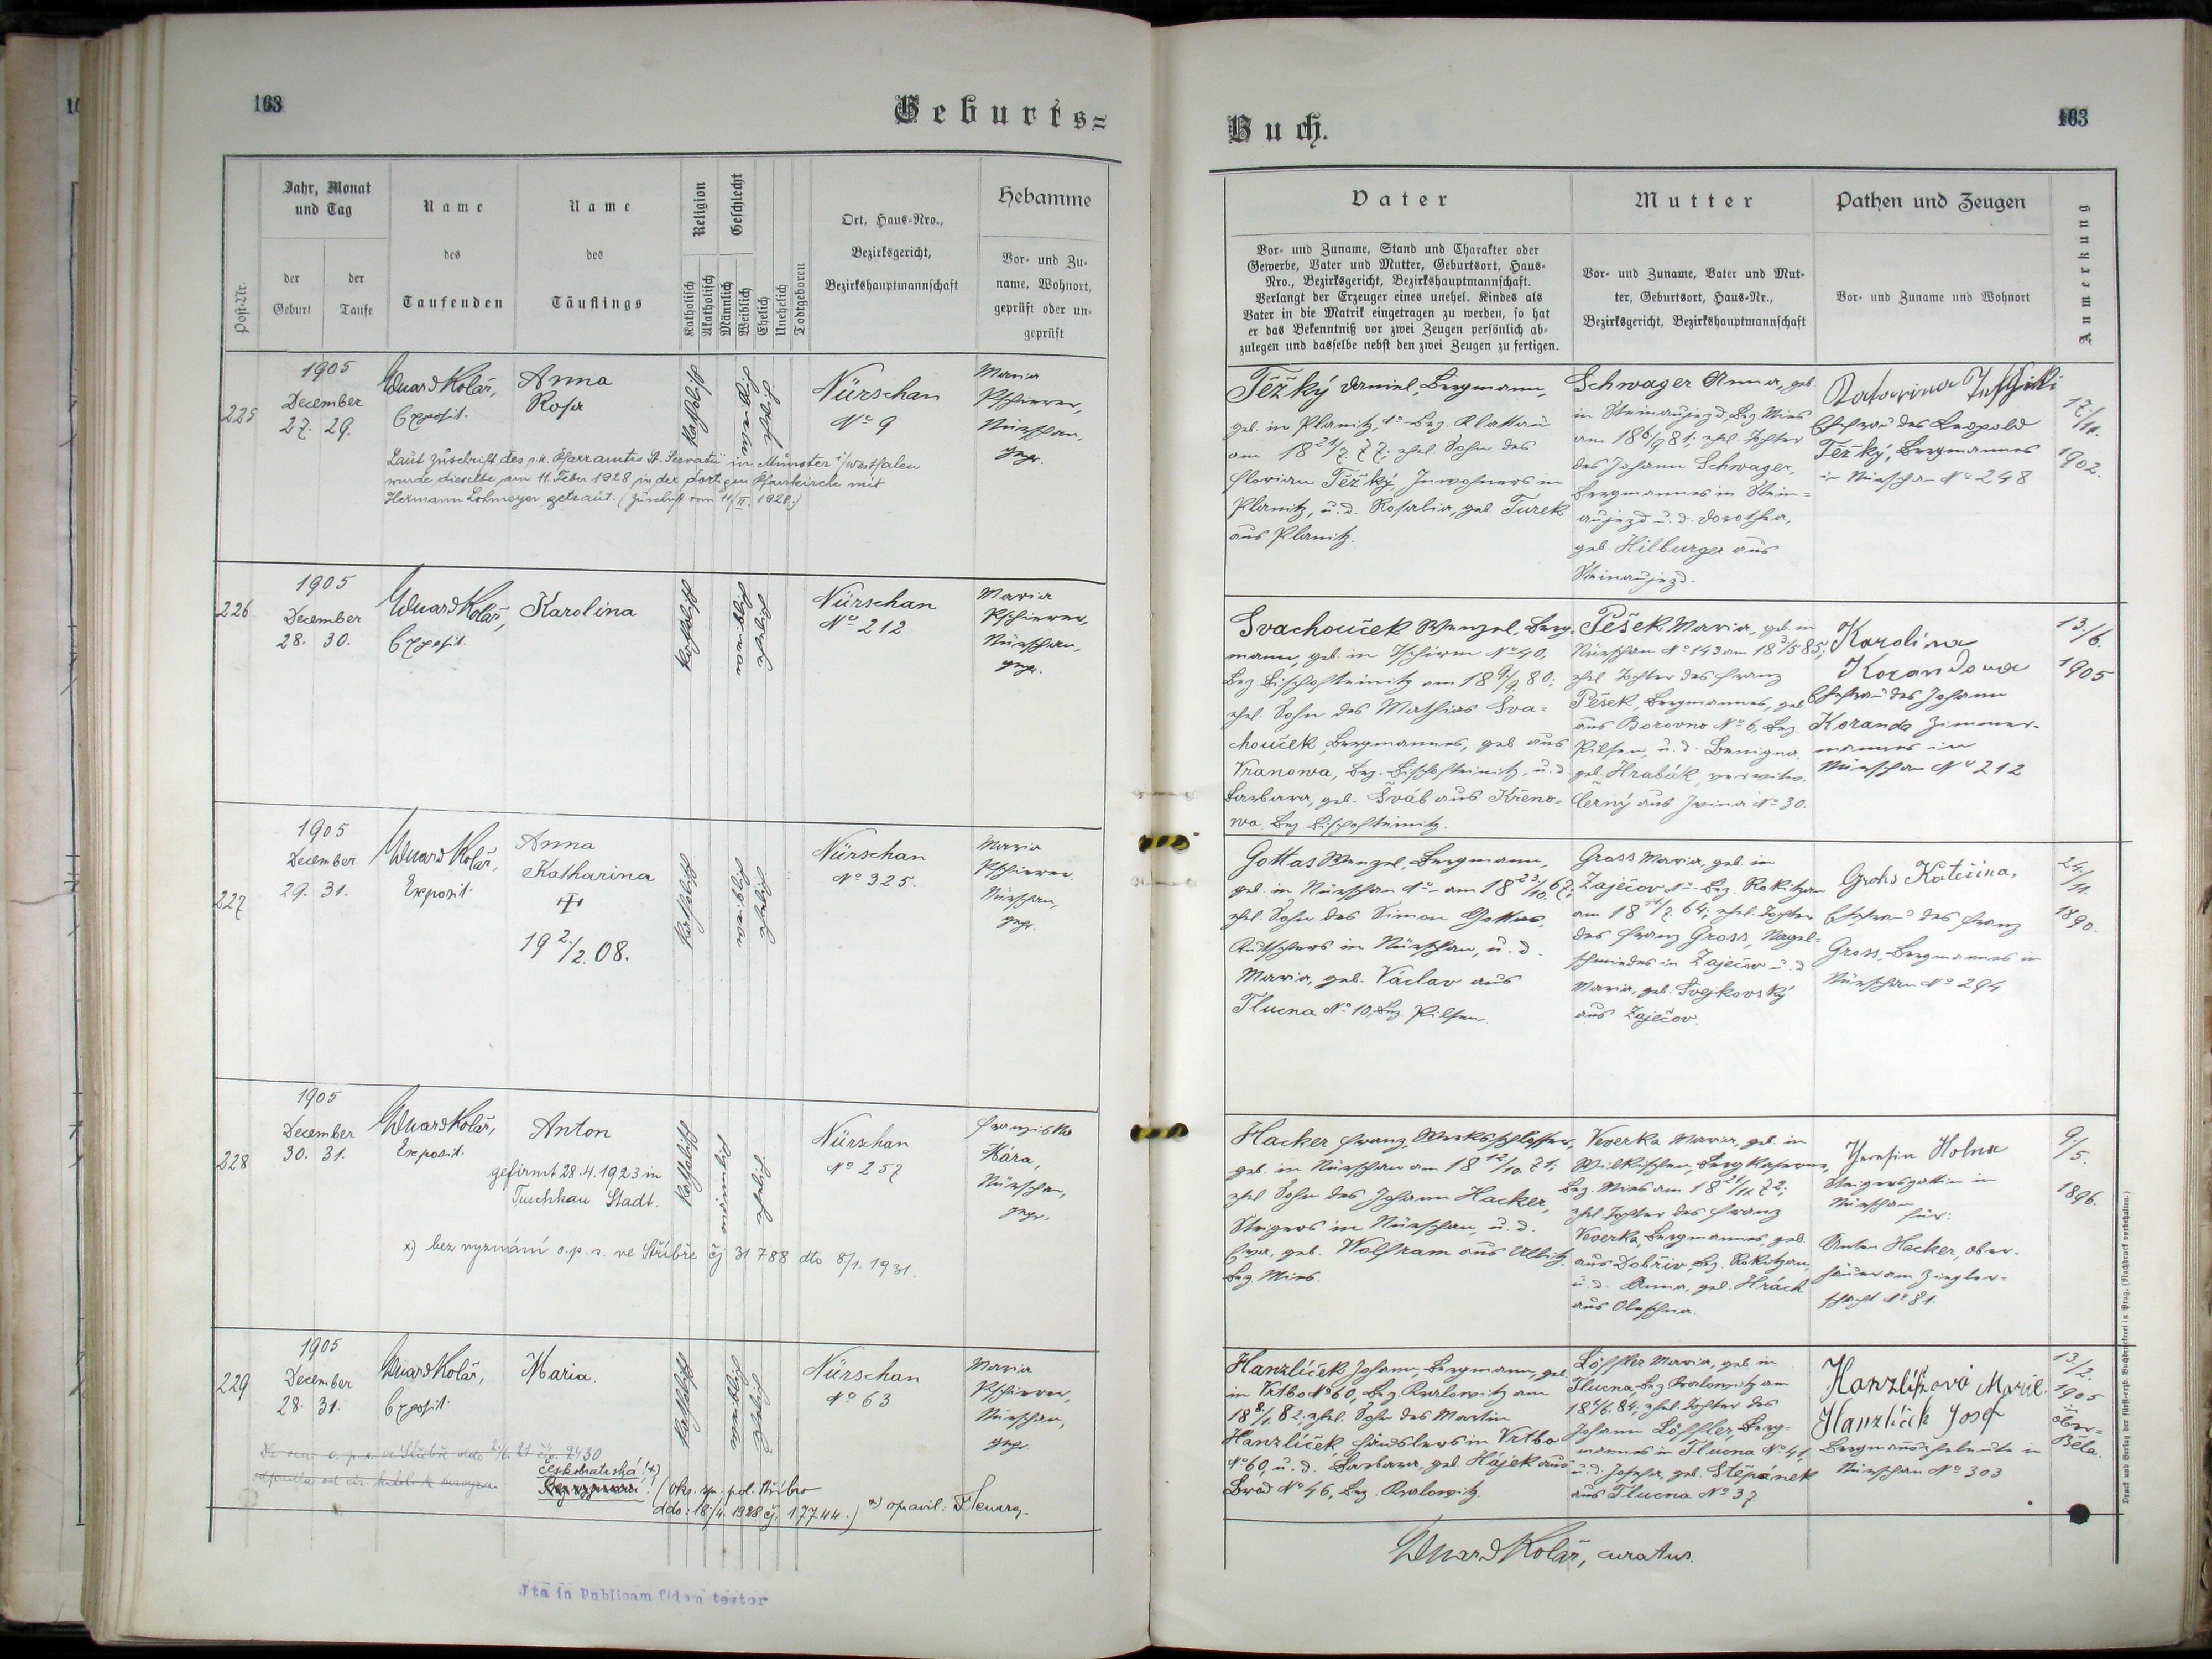 163
Geburts=
Post-Nr.
Jahr, Monat
und Tag
der
Geburt
der
Taufe
Name
des
Taufenden
Name
des
Täuflings
Religion
Katholisch
Akatholisch
Geschlecht
Männlich
Weiblich
Ehelich
Unehelich
Todtgeboren
Ort, Haus-Nro.,
Bezirksgericht,
Bezirkshauptmannschaft
Hebamme
Vor- und Zu-
name, Wohnort,
geprüft oder un-
geprüft
225
1905
December
27. 29.
Eduard Kolář,
Exposit.
Anna
Rosa
katholisch
ehelich
Nürschan
No 9
Maria
Nürschan,
gepr.
Laut Zuschrift des r.k. Pfarramtes St. Servatii in Münster i/Westfalen
wurde dieselbe am 11. Feber 1928 in der dortigen Pfarrkirche mit
Hermann Lohmeyer getraut. (Zuschrift vom 11/II. 1928.)
226
1905
December
28. 30.
Eduard Kolář,
Exposit.
Karolina
katholisch
ehelich
Nürschan
No 212
Maria
Nürschan,
gepr.
227
1905
December
29. 31.
Eduard Kolář,
Exposit.
Anna
Katharina
19 2./2. 08.
katholisch
ehelich
Nürschan
No 325.
Maria
Nürschan,
gepr.
228
1905
December
30. 31.
Eduard Kolář,
Exposit.
Anton
gefirmt 28.4.1923 in
Tuschkau Stadt.
katholisch
ehelich
Nürschan
No 257
Franziska
Hara,
Nürschan,
gepr.
x) bez vyznání o.p.s. ve Stříbře čj 31788 dto 8/1. 1931.
229
1905
December
28. 31.
Eduard Kolář,
Exposit.
Maria.
katholisch
ehelich
Nürschan
No 63
Maria
Nürschan,
gepr.
českobratrská! x)
(Okr. sp. pol. Stříbro
ddo: 18/4. 1928 čj. 17744.) x) opravil:
Ita in Publicam fidem testor
Buch.
163
Vater
Vor- und Zuname, Stand und Charakter oder
Gewerbe, Vater und Mutter, Geburtsort, Haus-
Nro., Bezirksgericht, Bezirkshauptmannschaft.
Verlangt der Erzeuger eines unehel. Kindes als
Vater in die Matrik eingetragen zu werden, so hat
er das Bekenntniß vor zwei Zeugen persönlich ab-
zulegen und dasselbe nebst den zwei Zeugen zu fertigen.
Mutter
Vor- und Zuname, Vater und Mut-
ter, Geburtsort, Haus-Nr.,
Bezirksgericht, Bezirkshauptmannschaft
Pathen und Zeugen
Vor- und Zuname und Wohnort
Anmerkung
Těžký Daniel, Bergmann,
geb. in Planitz, No - Bez. Klattau
am 18 21/7. 77; ehel. Sohn des
Florian Těžký, Inwohners in
Planitz, u. d. Rosalia, geb. Turek
aus Planitz.
Schwager Anna, geb.
in Steinaujezd, Bez. Mies
am 18 6/9 81; ehel. Tochter
des Johann Schwager,
Bergmannes in Stein=
aujezd u. d. Dorothea,
geb. Hilburger aus
Steinaujezd.
Ehefrau des Leopold
Těžký, Bergmannes
in Nürschan No 248
17./11.
1902.
Svachouček Wenzel, Berg-
mann, geb. in Tschirm No 40,
Bez. Bischofteinitz am 18 9./9. 80;
ehel. Sohn des Mathias Sva=
chouček, Bergmannes, geb. aus
Vranowa, Bez. Bischofteinitz, u. d.
Barbara, geb. Šváb aus Křeno=
wa, Bez. Bischofteinitz.
Pešek Maria, geb. in
Nürschan No 143 am 18 3./5 85;
ehel. Tochter des Franz
Pešek, Bergmannes, geb.
aus Borovno No 6, Bez.
Pilsen, u. d. Benigna,
geb. Hrabák, verwitw.
Černý aus No 30.
Karolina
Korandova
Ehefrau des Johann
Koranda Zimmer-
mannes in
Nürschan No 212
13./6.
1905
Gottas Wenzel, Bergmann,
geb. in Nürschan No - am 18 23/10. 67;
ehel. Sohn des Simon Gottas,
Kutschers in Nürschan, u. d.
Maria, geb. Václav aus
Tlucna No 10, Bez. Pilsen.
Gross Maria, geb. in
Zaječov No - Bez. Rokitzan
am 18 11/7. 64; ehel. Tochter
des Franz Gross, Nagel-
schmiedes in Zaječov u. d.
Maria, geb. Švejkovský
aus Zaječov.
Grohs Kateřina,
Ehefrau des Franz
Gross, Bergmannes in
Nürschan No 294
24./11.
1890.
Hacker Franz, Werksschlosser,
geb. in Nürschan am 18 12/10. 71;
ehel. Sohn des Johann Hacker,
Steigers in Nürschan, u. d.
Eva, geb. Wolfram aus Ullitz,
Bez. Mies.
Veverka Maria, geb. in
Wilkischen,
Bez. Mies am 18 21/11. 72;
ehel. Tochter des Franz
Veverka, Bergmannes, geb.
aus Dobřiv, Bez. Rokitzan,
u. d. Anna, geb. Hrách
aus Oleschna.
Steigersgattin in
Nürschan
für:
Anton Hacker, Ober-
häuer am Ziegler-
schacht No 81.
9./5.
1896.
Hanzlíček Johann, Bergmann, geb.
in Vrtbo No 60, Bez. Kralowitz am
18 8./1. 82; ehel. Sohn des Martin
Hanzlíček, Häuslers in Vrtbo
No 60, u. d. Barbara, geb. Hájek aus
Brod No 46, Bez. Kralowitz.
Löffler Maria, geb. in
Tlucna, Bez. Kralowitz am
84; ehel. Tochter des
Johann Löffler, Berg-
mannes in Tlucna No 41,
u. d. Josefa, geb. Štěpánek
aus Tlucna No 37.
Hanzlíčková Marie
Hanzlíček Josef
Bergmannseheleute in
Nürschan No 303
13./2.
1905
Ober=
Běla.
Eduard Kolář, curatus.
Druck und Verlag der fürsterzb. Buchdruckerei in Prag. (Nachdruck vorbehalten.)